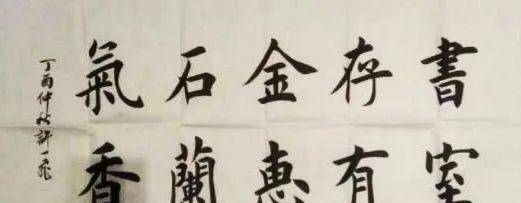 書存金石氣
室有惠蘭香
丁酉仲秋許一飛